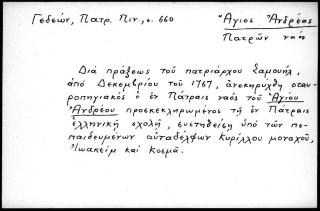 Γεδεών, Πατρ. Πιν., σ. 660
Ἅγιος Ἀνδρέας
Πατρῶν ναή
Διὰ πράξεως τοῦ πατριάρχου Σαμουήλ,
ἀπὸ Δεκεμβρίου τοῦ 1767, ἀνεκηρύχθη σταυ-
ροπηγιακὸς ὁ ἐν Πάτραις ναὸς τοῦ Ἁγίου
Ἀνδρέου προσκεκληρωμένος τῇ ἐν Πάτραις
ἑλληνικῇ σχολῇ, συστηθείσῃ ὑπὸ τῶν πε-
παιδευμένων αὐταδέλφων Κυρίλλου μοναχοῦ,
Ἰωακεὶμ καὶ Κοσμᾶ.